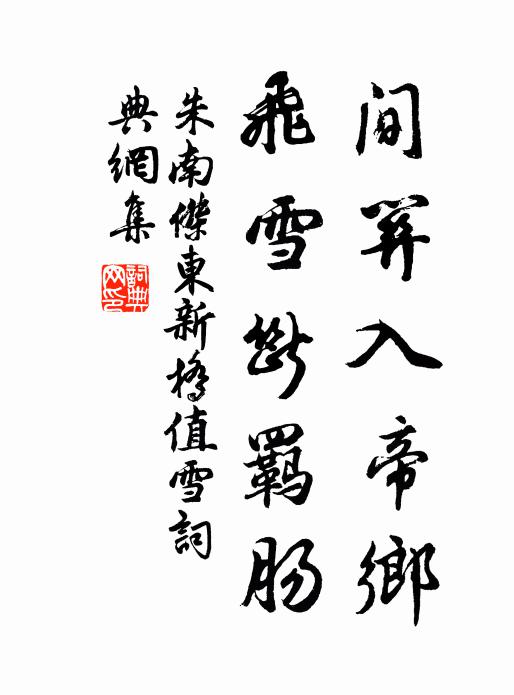 间關入帝鄉
飛雪斷羈肠
朱南傑東新橋值雪詞
典網集
詞典
网印